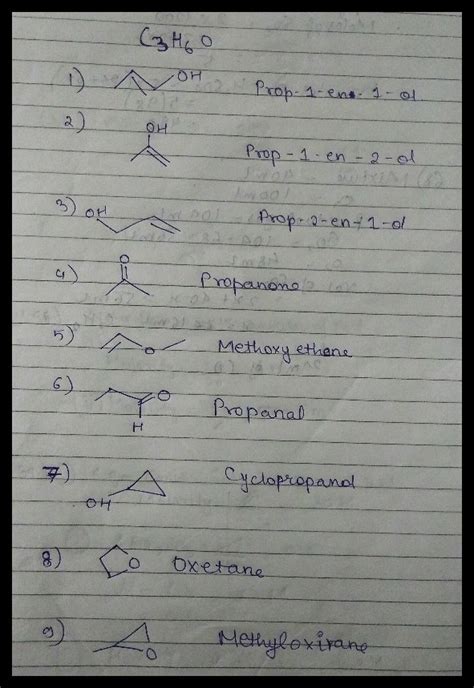 C3H6O
1) OH Prop-1-en-1-ol
2) OH Prop-1-en-2-ol
3) OH Prop-2-en-1-ol
4) O Propanone
5) O Methoxy ethene
6) O H Propanal
7) OH Cyclopropanol
8) O Oxetane
9) O Methyloxirane